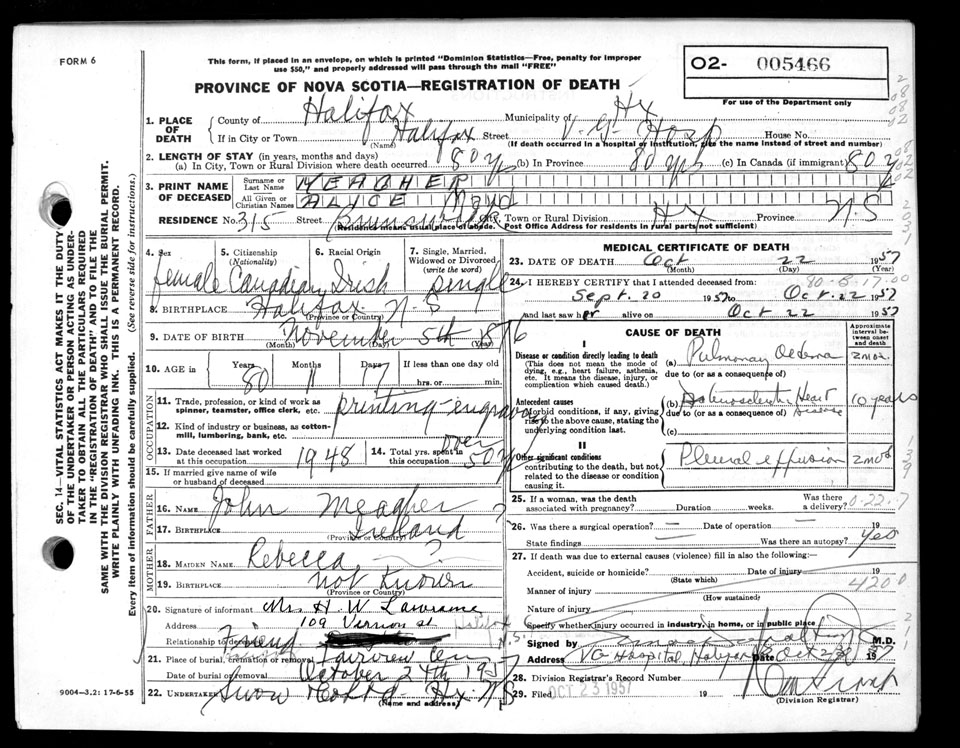 FORM 6
This form, if placed in an envelope, on which is printed "Dominion Statistics—Free, penalty for improper
use $50," and properly addressed will pass through the mail "FREE"
O2- 005466
For use of the Department only
PROVINCE OF NOVA SCOTIA—REGISTRATION OF DEATH
1. PLACE OF DEATH
County of Halifax Municipality of Hx
If in City or Town Halifax Street V.G. Hosp House No.
(Name) (If death occurred in a hospital or institution, give the name instead of street and number)
2. LENGTH OF STAY (in years, months and days)
(a) In City, Town or Rural Division where death occurred 80 y (b) In Province 80 yrs (c) In Canada (if immigrant) 80 y
3. PRINT NAME OF DECEASED
Surname or Last Name MEAGHER
All Given or Christian Names ALICE Mayd
RESIDENCE No. 315 Street City, Town or Rural Division Hx Province N.S
(Residence means usual place of abode. Post Office Address for residents in rural parts not sufficient)
4. Sex
female
5. Citizenship
(Nationality)
Canadian
6. Racial Origin
Irish
7. Single, Married,
Widowed or Divorced
(write the word)
single
8. BIRTHPLACE Halifax N-S
(Province or Country)
9. DATE OF BIRTH November 5th 1876
(Month) (Day) (Year)
10. AGE Years 80 Months 11 Days If less than one day old
hrs. or min.
OCCUPATION
11. Trade, profession, or kind of work as
spinner, teamster, office clerk, etc. printing-engraving
12. Kind of industry or business, as cotton-
mill, lumbering, bank, etc.
13. Date deceased last worked
at this occupation 1948
14. Total yrs. spent
in this occupation over 50 y
15. If married give name of wife
or husband of deceased
FATHER
16. NAME John Meagher
17. BIRTHPLACE Ireland
(Province or Country)
MOTHER
18. MAIDEN NAME Rebecca ?
19. BIRTHPLACE not Known
(Province or Country)
20. Signature of informant Mr. H. W. Lawrame
Address 109 Vernon st Halifax N.S.
Relationship to deceased Friend
21. Place of burial, cremation or removal Fairview Cem
Date of burial or removal October 24th 1957
22. UNDERTAKER Snow Hx. N.S
(Name and address)
9004-3,2: 17-6-55
SEC. 14—VITAL STATISTICS ACT MAKES IT THE DUTY
OF THE UNDERTAKER OR PERSON ACTING AS UNDER-
TAKER TO OBTAIN ALL THE PARTICULARS REQUIRED
IN THE "REGISTRATION OF DEATH" AND TO FILE THE
SAME WITH THE DIVISION REGISTRAR WHO SHALL ISSUE THE BURIAL PERMIT.
WRITE PLAINLY WITH UNFADING INK. THIS IS A PERMANENT RECORD.
Every item of information should be carefully supplied. (See reverse side for instructions.)
MEDICAL CERTIFICATE OF DEATH
23. DATE OF DEATH Oct 22 1957
(Month) (Day) (Year)
24. I HEREBY CERTIFY that I attended deceased from:
Sept. 20 1957 to Oct. 22 1957
and last saw her alive on Oct 22 1957
CAUSE OF DEATH
Approximate
interval be-
tween onset
and death
I
Disease or condition directly leading to death
(This does not mean the mode of
dying, e.g., heart failure, asthenia,
etc. It means the disease, injury, or
complication which caused death.)
(a) Pulmonary Oedema 2 mos.
due to (or as a consequence of)
Antecedent causes
Morbid conditions, if any, giving
rise to the above cause, stating the
underlying condition last.
(b) Arteriosclerotic Heart Disease 10 years
due to (or as a consequence of)
(c)
II
Other significant conditions
contributing to the death, but not
related to the disease or condition
causing it.
Pleural effusion 2 mos
25. If a woman, was the death
associated with pregnancy? Duration weeks. Was there
a delivery?
26. Was there a surgical operation? — Date of operation — 19
State findings — Was there an autopsy? Yes
27. If death was due to external causes (violence) fill in also the following:—
Accident, suicide or homicide? Date of injury 19
(State which)
Manner of injury 4200
(How sustained)
Nature of injury
Specify whether injury occurred in industry, in home, or in public place
Signed by M.D.
Address VG Hospital, Halifax Date Oct 23 1957
28. Division Registrar's Record Number
29. Filed OCT 23 1957 19
(Division Registrar)